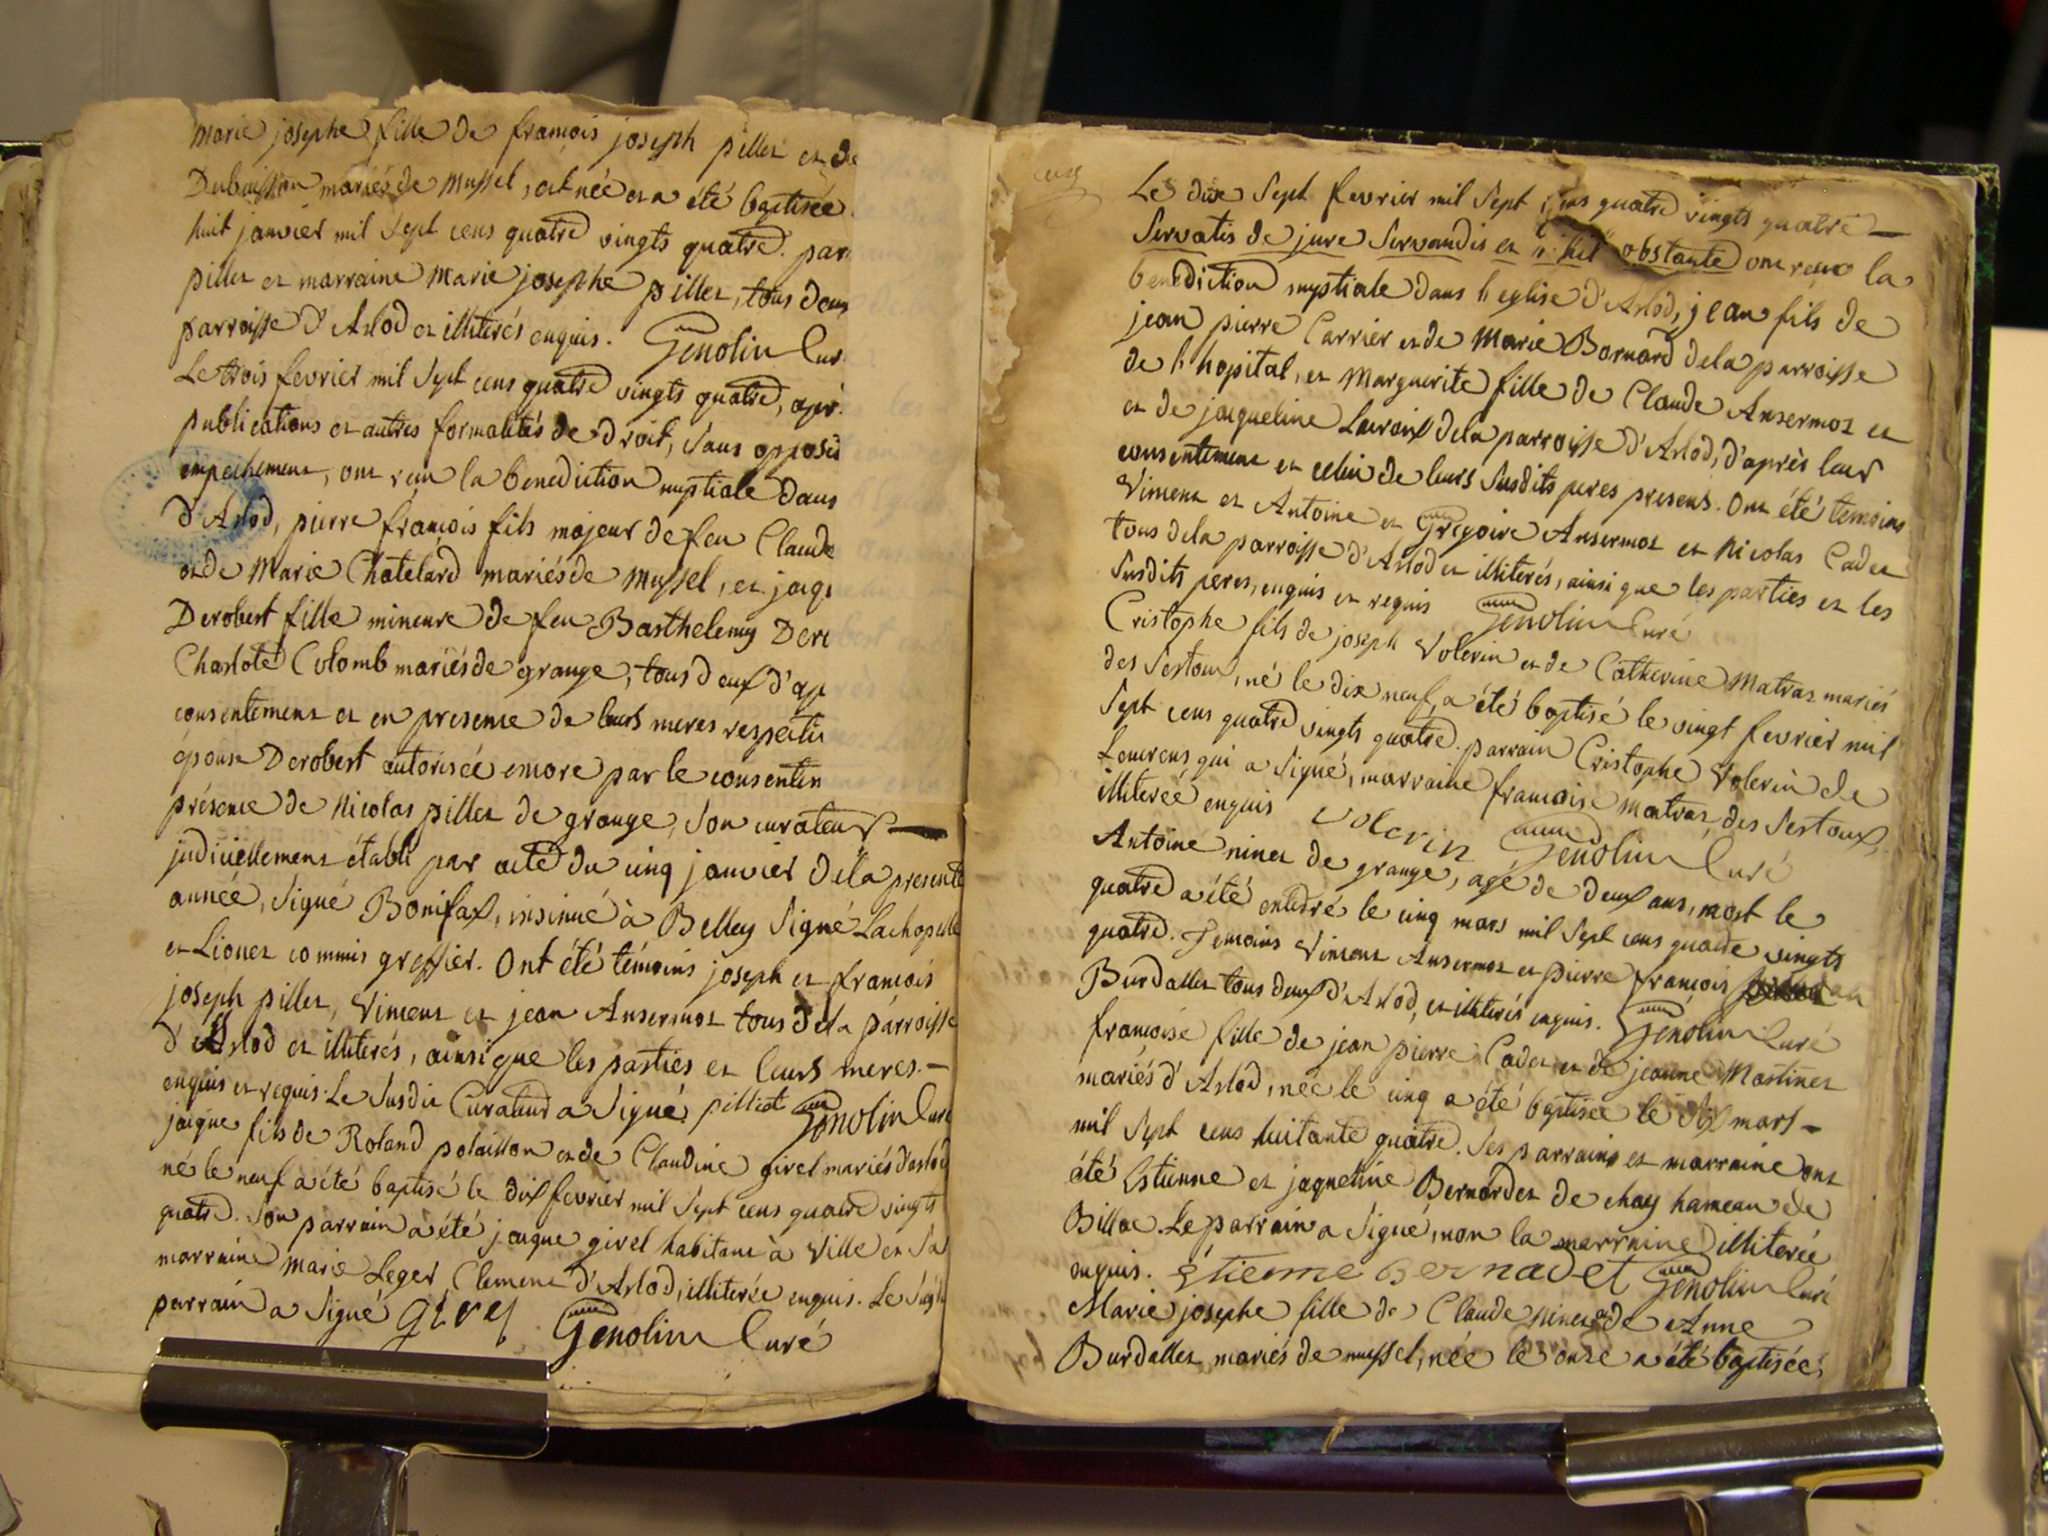 Marie josephe fille de françois joseph pillet et de
Dubuisson mariés de Mussel, est née et a été baptisée
huit janvier mil sept cens quatre vingts quatre. par
pillet et marraine Marie josephe pillet, tous deux
parroisse d'Arlod et illiterés enquis. Genolin Cur
Le trois fevrier mil sept cens quatre vingts quatre, apr
publications et autres formalités de droit, sans opposi
empechement, ont reçu la benediction nuptiale dans
d'Arlod, pierre françois fils majeur de feu Claude
et de Marie Chatelard mariés de Mussel, et jaq
Derobert fille mineure de feu Barthelemy Dero
Charlote Colomb mariés de grange, tous deux d'ap
consentement et en presence de leurs meres respectiv
épouse Derobert autorisée encore par le consentem
présence de Nicolas pillet de grange, son curateur
judiciellement établi par acte du cinq janvier de la presente
année, signé Bonifax, insinué à Belley signé Lachapelle
et Lionet commis greffier. Ont été témoins joseph et françois
joseph pillet, Vincent et jean Ansermoz tous de la parroisse
d'Arlod et illiterés, ainsi que les parties et leurs meres.
enquis et requis. Le susdit Curateur a signé. pilliet Genolin Curé
jaque fils de Roland polaillon et de Claudine givel mariés d'arlod
né le neuf a été baptisé le dix fevrier mil sept cens quatre vingts
quatre. Son parrain a été jaque givel habitant à Ville en Sa
marraine Marie Leger Clement d'Arlod, illiterée enquis. Le susd
parrain a signé givel Genolin Curé
Le dixe sept fevrier mil sept cens quatre vingts quatre
Servatis de jure servandis et nihil obstante ont reçu la
benediction nuptiale dans l'eglise d'Arlod, jean fils de
jean pierre Carrier et de Marie Bornard de la parroisse
de l'hopital, et Marguerite fille de Claude Ansermoz et
et de jacqueline Lacroix de la parroisse d'Arlod, d'après leur
consentement et celui de leurs susdits peres presens. Ont été temoins
Vincent et Antoine et Gregoire Ansermoz et Nicolas Cadet
tous de la parroisse d'Arlod et illiterés, ainsi que les parties et les
susdits peres, enquis et requis Genolin Curé
Cristophe fils de joseph Volerin et de Catherine Matraz mariés
des Sertoux, né le dix neuf, a été baptisé le vingt fevrier mil
sept cens quatre vingts quatre. parrain Cristophe Volerin de
Lourens qui a signé, marraine françoise Matraz des Sertoux,
illiterée enquis volerin Genolin Curé
Antoine ninet de grange, agé de deux ans, mort le
quatre a été enterré le cinq mars mil sept cens quatre vingts
quatre. Temoins Vincent Ansermoz et pierre françois
Burdallet tous deux d'Arlod, et illiterés enquis. Genolin Curé
françoise fille de jean pierre Cadet et de jeanne Martinet
mariés d'Arlod, née le cinq a été baptisée le six mars
mil sept cens huitante quatre. Ses parrain et marraine ont
été Estienne et jaqueline Bernardet de chay hameau de
Billiac. Le parrain a signé, non la marraine illiterée
enquis. étienne Bernadet Genolin Curé
Marie josephe fille de Claude Ninet et de Anne
Burdallet mariés de mussel, née le onze a été baptisée